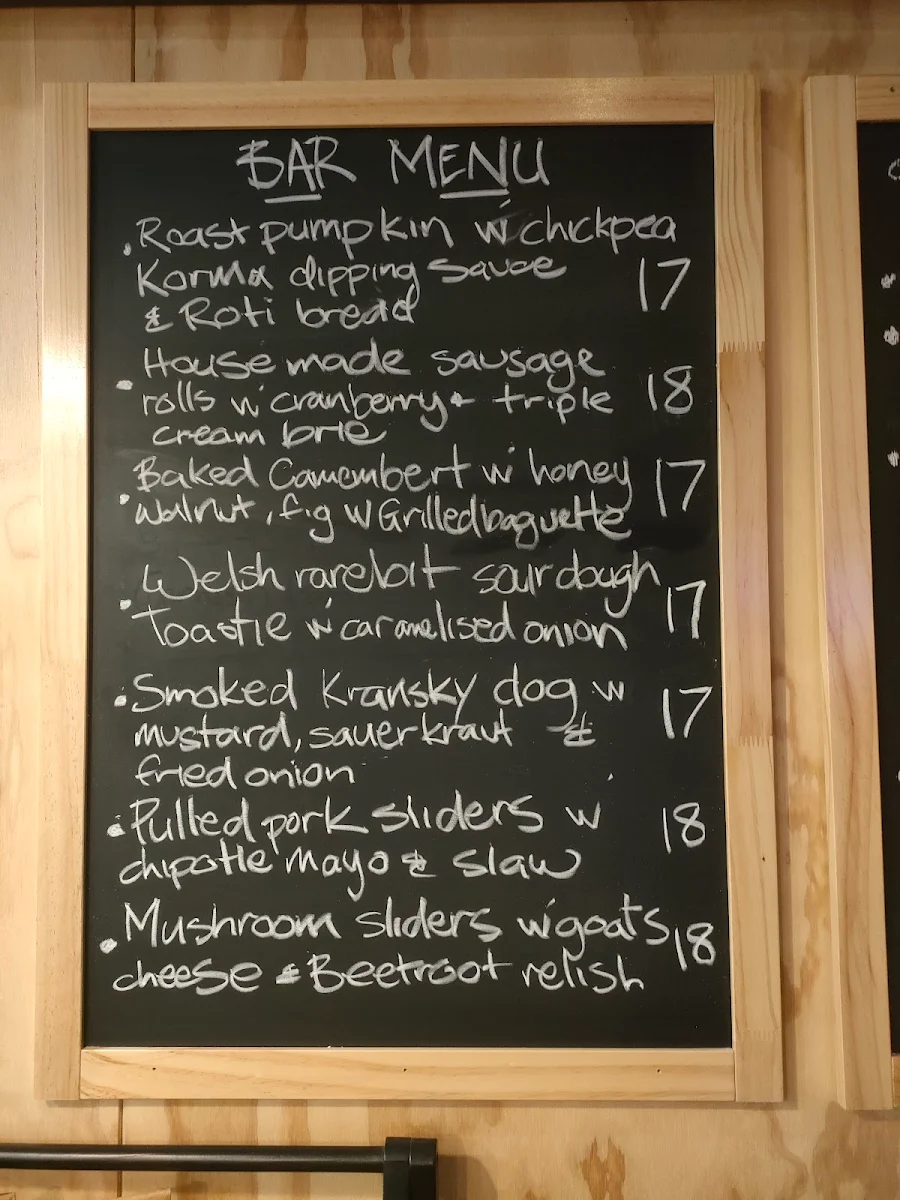 BAR MENU
. Roast pumpkin w' chickpea
Korma dipping sauce 17
& Roti bread
House made sausage
. rolls w' cranberry & triple 18
cream brie
Baked Camembert w' honey 17
. walnut, fig w Grilled baguette
Welsh rarebit sourdough
. Toastie w' caramelised onion 17
. Smoked Kransky dog w 17
mustard, sauerkraut &
fried onion
. Pulled pork sliders w 18
chipotle mayo & slaw
. Mushroom sliders w' goats 18
cheese & Beetroot relish